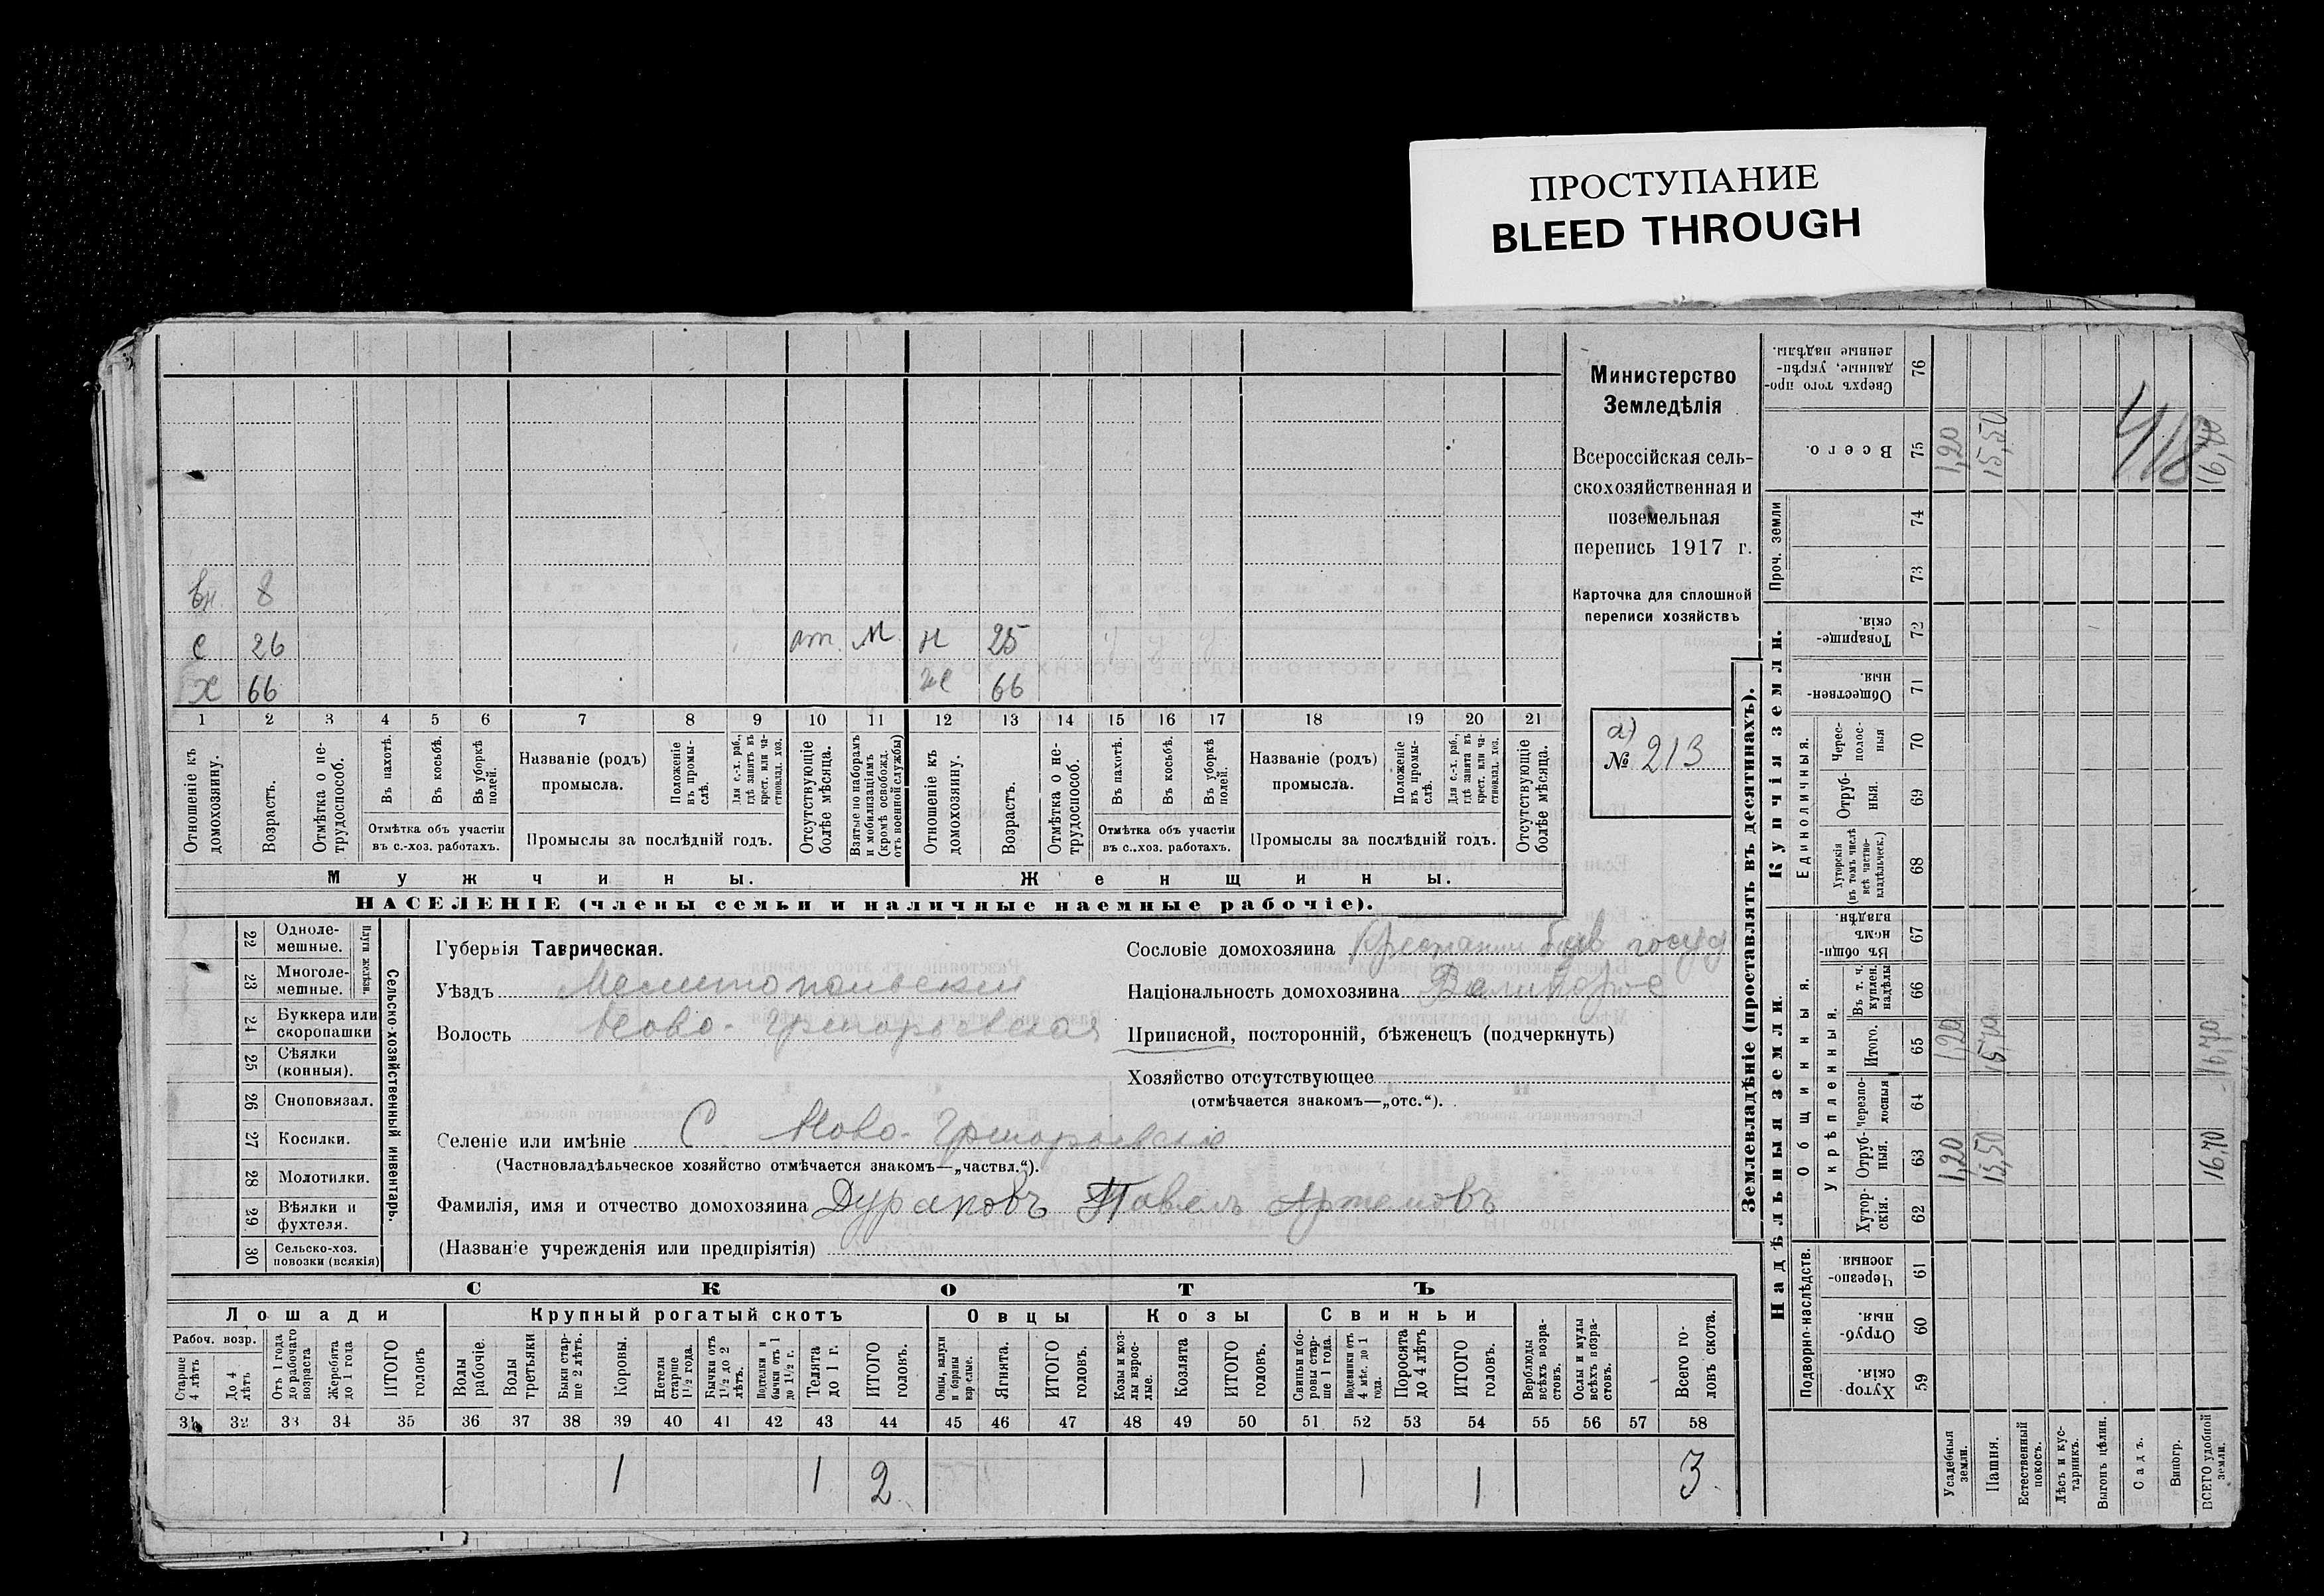 ПРОСТУПАНИЕ
BLEED THROUGH
Министерство
Земледѣлія
Всероссійская сель-
скохозяйственная и
поземельная
перепись 1917 г.
Карточка для сплошной
переписи хозяйствъ
а)
№ 213
вн. 8
с 26 от. М н 25
х 66 же 66
1 2 3 4 5 6 7 8 9 10 11 12 13 14 15 16 17 18 19 20 21
Отношеніе къ домохозяину.
Возрастъ.
Отмѣтка о не-трудоспособ.
Въ пахотѣ.
Въ косьбѣ.
Въ уборкѣ полей.
Отмѣтка объ участіи
въ с.-хоз. работахъ.
Названіе (родъ)
промысла.
Положеніе въ промы-слѣ.
Для с.-х. раб., гдѣ занятъ въ крест. или ча-стновлад. хоз.
Промыслы за послѣдній годъ.
Отсутствующіе болѣе мѣсяца.
Взятые по наборамъ и мобилизаціямъ (кромѣ освобожд. отъ военной службы)
Отношеніе къ домохозяину.
Возрастъ.
Отмѣтка о не-трудоспособ.
Въ пахотѣ.
Въ косьбѣ.
Въ уборкѣ полей.
Отмѣтка объ участіи
въ с.-хоз. работахъ.
Названіе (родъ)
промысла.
Положеніе въ промы-слѣ.
Для с.-х. раб., гдѣ занята въ крест. или ча-стновлад. хоз.
Промыслы за послѣдній годъ.
Отсутствующіе болѣе мѣсяца.
Мужчины. Женщины.
НАСЕЛЕНІЕ (члены семьи и наличные наемные рабочіе).
22 Одноле-мешные.
23 Многоле-мешные.
Плуги желѣзн.
24 Буккера или скоропашки
25 Сѣялки (конныя).
26 Сноповязал.
27 Косилки.
28 Молотилки.
29 Вѣялки и фухтеля.
30 Сельско-хоз. повозки (всякія)
Сельско-хозяйственный инвентарь.
Губернія Таврическая.
Уѣздъ Мелитопольскій
Волость Ново-Григорьевская
Селеніе или имѣніе С. Ново-Григорьевское
(Частновладѣльческое хозяйство отмѣчается знакомъ—„частвл.“).
Фамилія, имя и отчество домохозяина Дураковъ Павелъ Артемовъ
(Названіе учрежденія или предпріятія)
Сословіе домохозяина Крестьянин быв госуд
Національность домохозяина
Приписной, посторонній, бѣженецъ (подчеркнуть)
Хозяйство отсутствующее
(отмѣчается знакомъ—„отс.“).
СКОТЪ
Лошади Крупный рогатый скотъ Овцы Козы Свиньи
Рабоч. возр.
Старше 4 лѣтъ
До 4 лѣтъ
Отъ 1 года до рабочаго возраста
Жеребята до 1 года
ИТОГО головъ
Волы рабочіе.
Волы третьяки
Быки стар-ше 2 лѣтъ.
Коровы.
Нетели старше 1½ года.
Бычки отъ 1½ до 2 лѣтъ.
Подтелки и бычки отъ 1 до 1½ г.
Телята до 1 г.
ИТОГО головъ.
Овцы, валухи и бараны взрослые.
Ягнята.
ИТОГО головъ.
Козы и коз-лы взрос-лые.
Козлята
ИТОГО головъ.
Свиньи и бо-ровы стар-ше 1 года.
Подсвинки отъ 4 мѣс. до 1 года.
Поросята до 4 лѣтъ
ИТОГО головъ.
Верблюды всѣхъ возра-стовъ.
Ослы и мулы всѣхъ возра-стовъ.
Всего го-ловъ скота.
31 32 33 34 35 36 37 38 39 40 41 42 43 44 45 46 47 48 49 50 51 52 53 54 55 56 57 58
1 1 2 1 1 3
Землевладѣніе (проставлять въ десятинахъ).
Надѣльныя земли. Купчія земли.
Подворно-наслѣдств. Общинныя. Укрѣпленныя. Единоличныя. Проч. земли
Хутор-скія. 59
Отруб-ныя. 60
Черезпо-лосныя 61
Хутор-скія. 62
Отруб-ныя. 63
Черезпо-лосныя 64
Итого. 65
Въ т. ч. куплен. надѣлы 66
Въ общи-номъ владѣн. 67
Хуторскія (въ томъ числѣ всѣ частно-владѣльческ.) 68
Отруб-ныя. 69
Черес-полос-ныя 70
Обществен-ныя. 71
Товарище-скія. 72
73
74
Всего. 75
Сверхъ того про-данные, укрѣп-ленные надѣлы. 76
Усадебныя земли. 1,20 1,20 1,20
Пашня. 15,50 15,50
Естественный покосъ.
Лѣсъ и кус-тарникъ.
Выгонъ цѣлин.
Садъ.
Виногр.
ВСЕГО удобной земли. 16,70 16,70
418